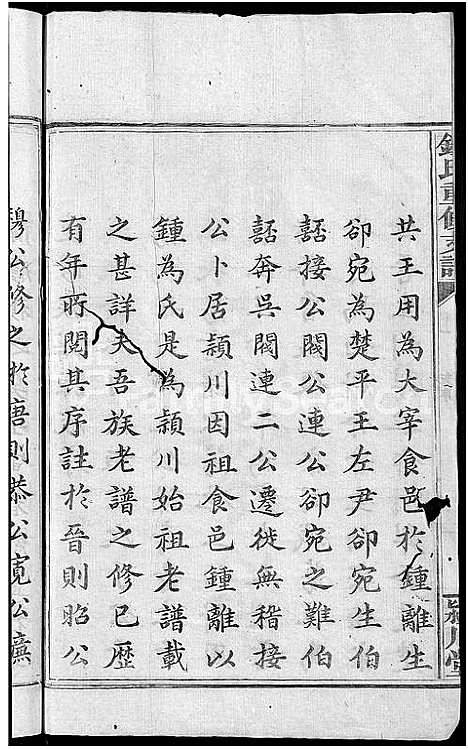 鍾氏重修支譜
潁川堂
共王用為大宰食邑於鍾離生
卻宛為楚平王左尹卻宛生伯
嚭接公閥公連公卻宛之難伯
嚭奔吳閥連二公遷徙無稽接
公卜居潁川因祖食邑鍾離以
鍾為氏是為潁川始祖老譜載
之甚詳夫吾族老譜之修已歷
有年所閱其序註於晉則昭公
穆公修之於唐則恭公寬公廡